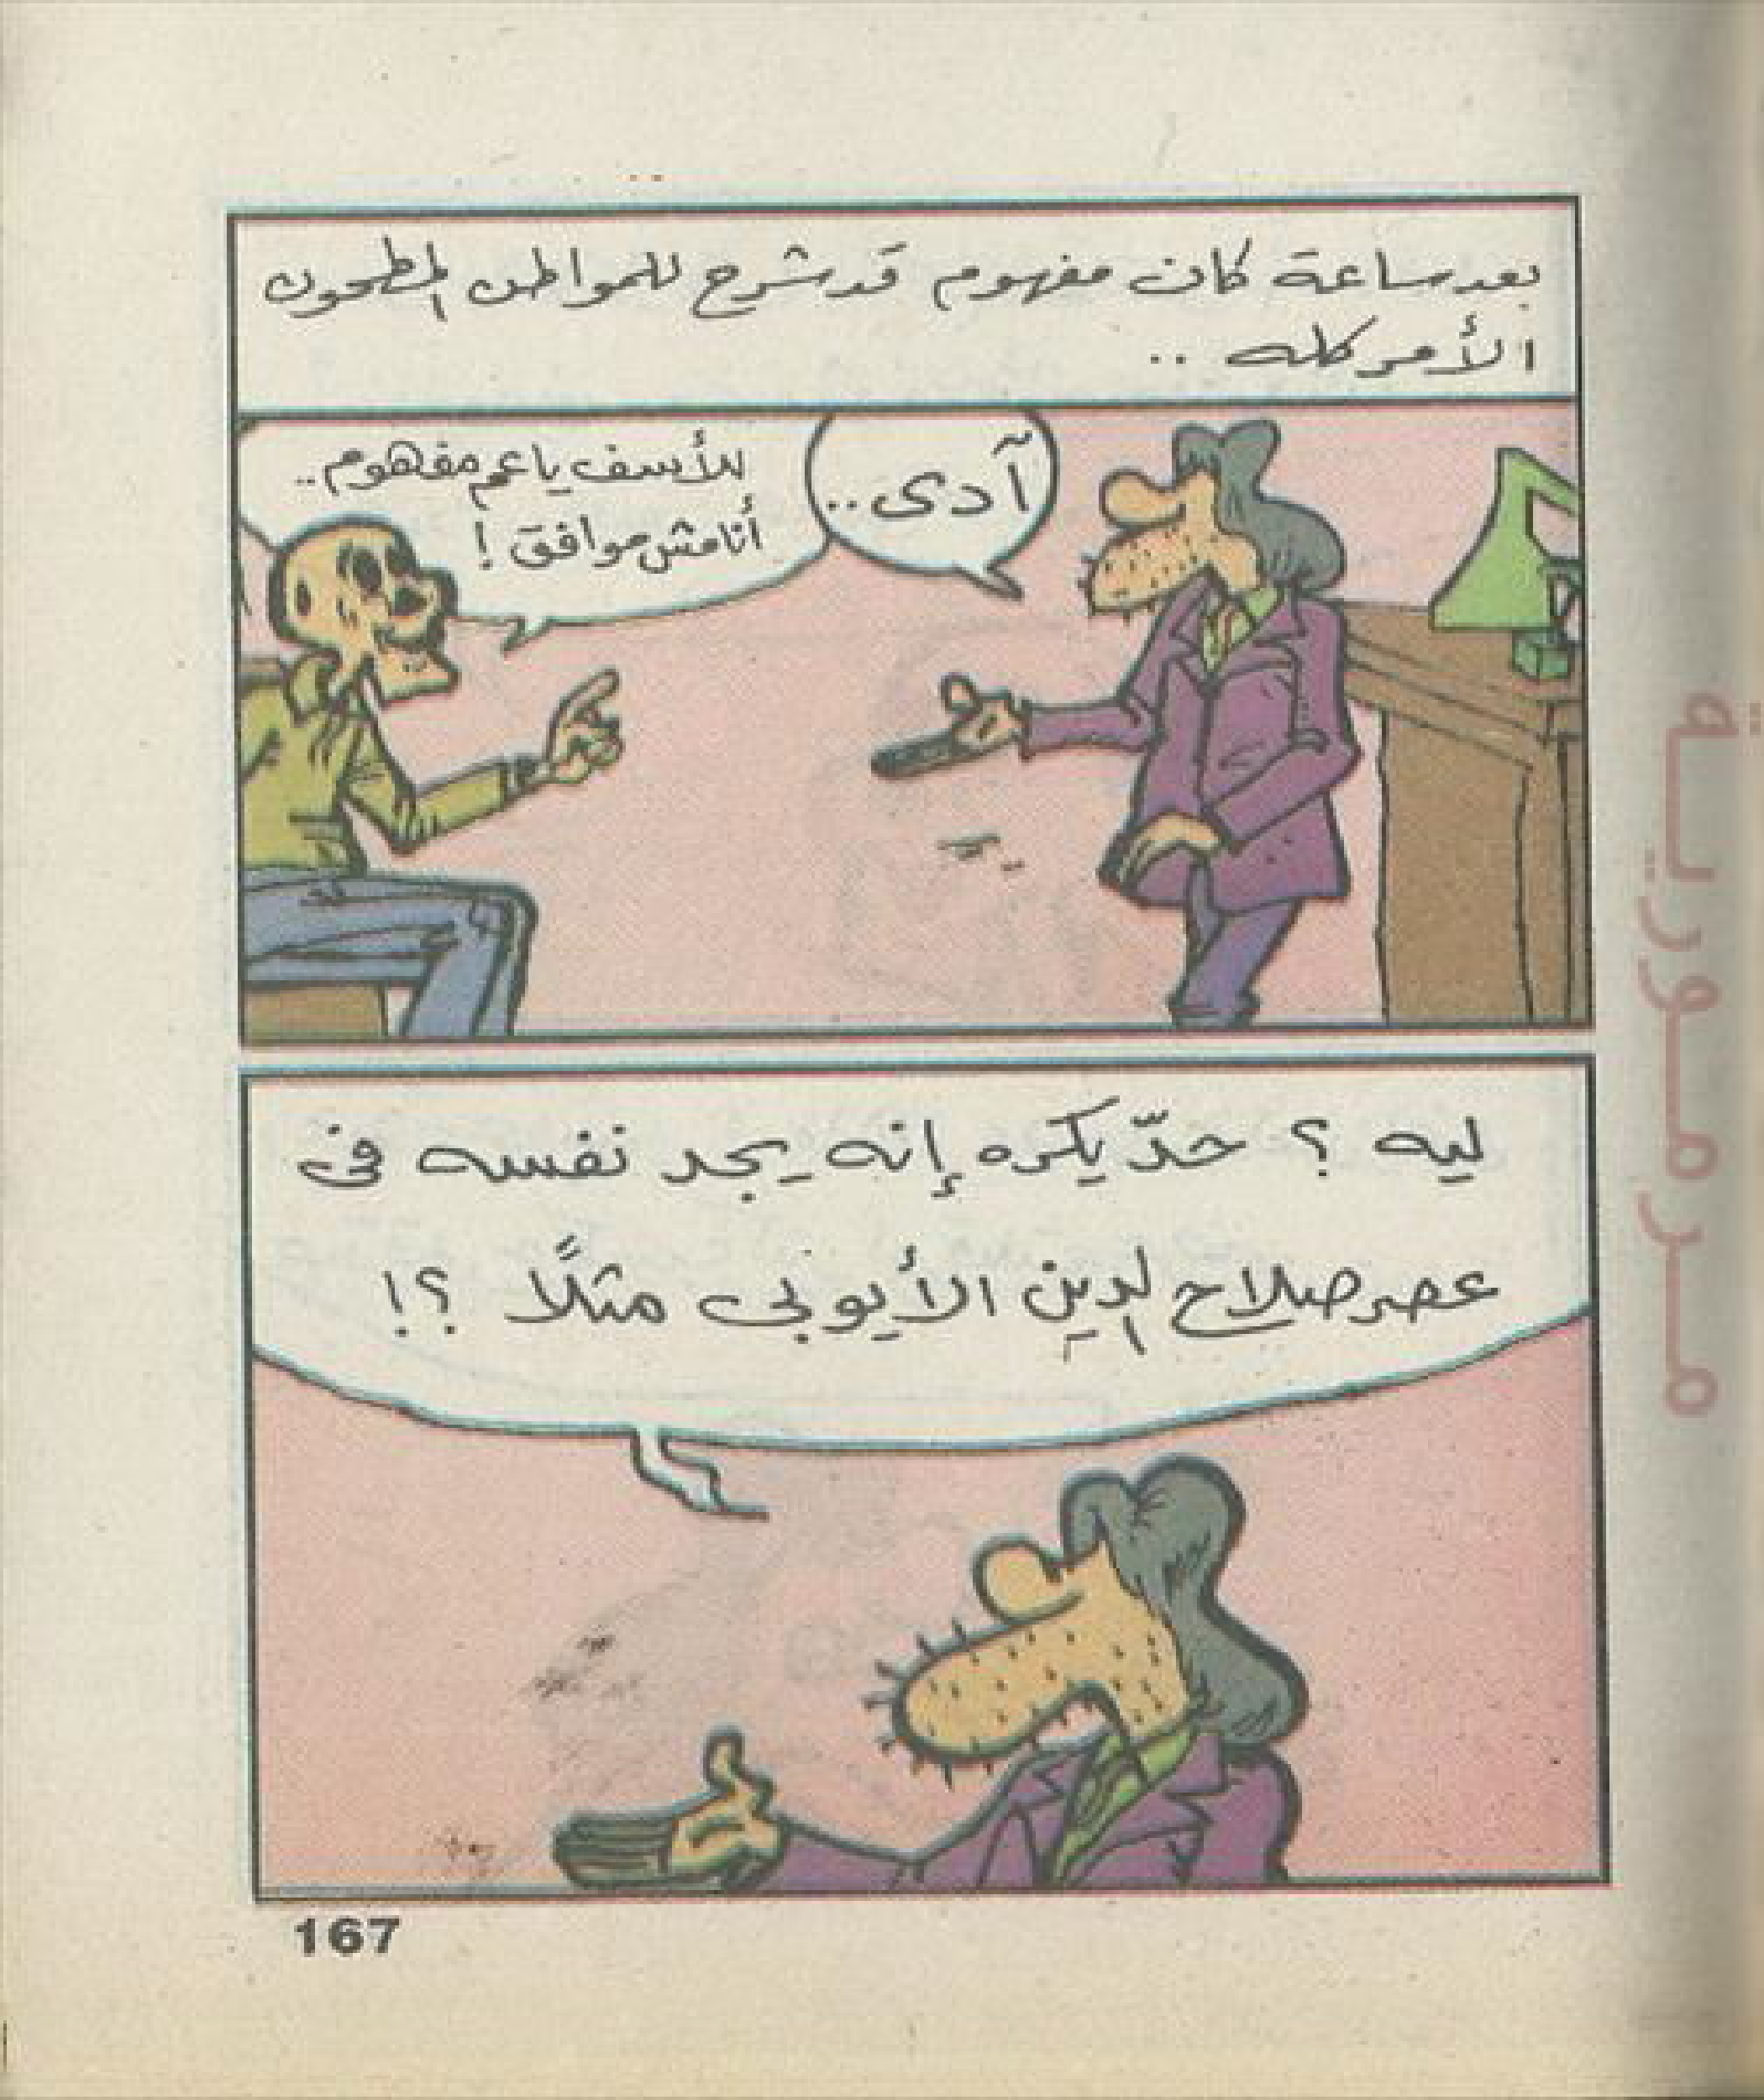 بعد ساعة كان مفهوم قد شرح للمواطن المطحون
الأمر كله ..
آدى ..
للأسف يا عم مفهوم ..
أنا مش موافق !
ليه ؟ حدّ يكره إنه يجد نفسه فى
عصر صلاح الدين الأيوبى مثلًا ؟!
167